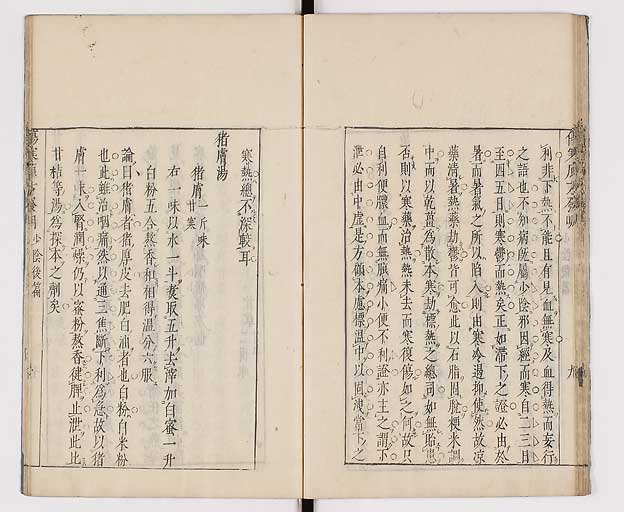 利非下熱不能且有見血無寒及血得熱而妄行
之語也不知病旣屬少陰邪因經而寒自二三日
至四五日則寒鬱而熱矣正如滯下之證必由於
暑而暑氣之所以陷入則由寒冷遏抑使然故凉
藥淸暑熱藥劫鬱皆可愈此以石脂固脫粳米調
中而以乾薑爲散本寒劫標熱之總司如無貽患
否則以寒藥治熱熱未去而寒復傷如之何故只
自利便膿血而無腹痛小便不利證亦主之謂下
泄必由中虛是方顧本慮標溫中以固洩當下之
寒熱總不深較耳
猪膚湯
猪膚一斤味甘寒
右一味以水一斗煑取五升去滓加白蜜一升
白粉五合熬香和相得溫分六服
論曰猪膚者猪厚皮去肥白油者也白粉白米粉
也此雖治咽痛然以通三焦斷下利爲急故以猪
膚一味入腎潤燥仍以蜜粉熬香健脾止泄此比
甘桔等湯爲探本之劑矣
少陰後篇